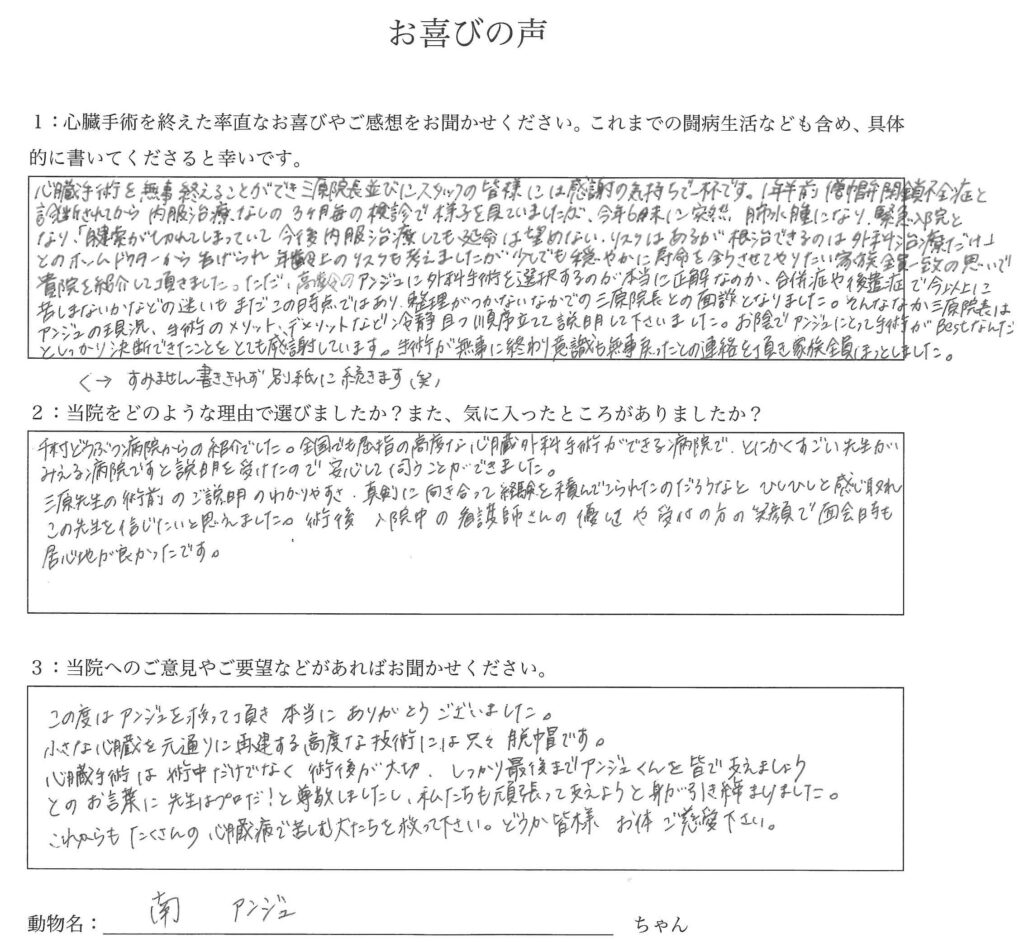 お喜びの声
１：心臓手術を終えた率直なお喜びやご感想をお聞かせください。これまでの闘病生活なども含め、具体
的に書いてくださると幸いです。
心臓手術を無事終えることができ三原院長並びにスタッフの皆様には感謝の気持ちで一杯です。1年半前 僧帽弁閉鎖不全症と
診断されてから 内服治療なしの3ヶ月毎の検診で様子を見ていましたが、今年6月末に突然 肺水腫になり、緊急入院と
なり、「腱索が切れてしまっていて 今後内服治療しても延命は望めない、リスクはあるが 根治できるのは外科治療だけ」
とのホームドクターから告げられ 年齢上のリスクも考えましたが少しでも穏やかに寿命を全うさせてやりたい家族全員一致の思いで
貴院を紹介して頂きました。ただ、高齢のアンジュに外科手術を選択するのが本当に正解なのか、合併症や後遺症で今以上に
苦しまないかなどの迷いも まだこの時点ではあり、整理がつかないなかでの三原院長との面談となりました。そんななか三原院長は
アンジュの現況、手術のメリット、デメリットなど冷静且つ順序立てて説明して下さいました。お陰でアンジュにとって手術がBestなんだ
としっかり決断できたことをとても感謝しています。手術が無事に終わり意識も無事戻ったとの連絡を頂き家族全員ほっとしました。
すみません書ききれず 別紙に続きます(笑)
２：当院をどのような理由で選びましたか？また、気に入ったところがありましたか？
千村どうぶつ病院からの紹介でした。全国でも屈指の高度な心臓外科手術ができる病院で、とにかくすごい先生が
みえる病院ですと説明を受けたので 安心して伺うことができました。
三原先生の術前のご説明のわかりやすさ、真剣に向き合って経験を積んでこられたのだろうなと ひしひしと感じ取れ
この先生を信じたいと思えました。術後 入院中の看護師さんの優しさや受付の方の笑顔で面会時も
居心地が良かったです。
３：当院へのご意見やご要望などがあればお聞かせください。
この度はアンジュを救って頂き 本当に ありがとう ございました。
小さな心臓を元通りに再建する高度な技術には只々 脱帽です。
心臓手術は 術中だけでなく 術後が大切、しっかり最後までアンジュくんを皆で支えましょう
とのお言葉に 先生はプロだ！と尊敬しましたし、私たちも頑張って支えようと身が引き締まりました。
これからも たくさんの 心臓病で苦しむ犬たちを救って下さい。どうか皆様 お体 ご慈愛下さい。
動物名： 南 アンジュ ちゃん